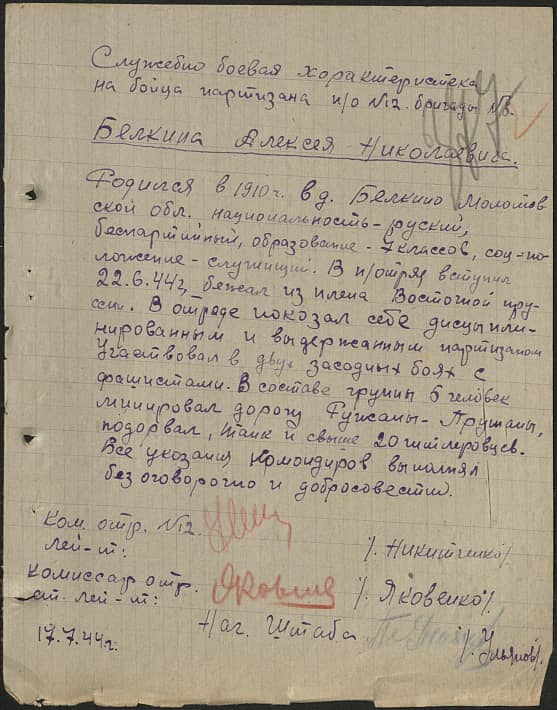 Служебно боевая характеристека
на бойца партизана п/о №12. бригады №8.
Белкина Алексея Николаевича.
Родился в 1910 г. в д. Белкино Молотов
ской обл. национальность - руский,
беспартийный, образование - 7 классов, соц-по-
ложение - служищий. В п/отряд вступил
22.6.44г, бежал из плена Восточной пру-
ссии. В отреде покозал себе дисцыпли-
нированным и выдержанным партизаном
Участвовал в двух засодных боях с
фашистами. В составе группы 5 человек
минировал дорогу Ружаны - Пружаны,
подорвал, танк и свыше 20 гитлеровцев.
Все указания командиров выполнял
без оговорочно и добросовестно.
Ком. отр. №12.
лей-т: /. Никитченко/.
комиссар отр. Яковенко /. Яковенко/.
ст. лей-т:
Нач. Штаба /. Ульянов/.
17.7.44г.